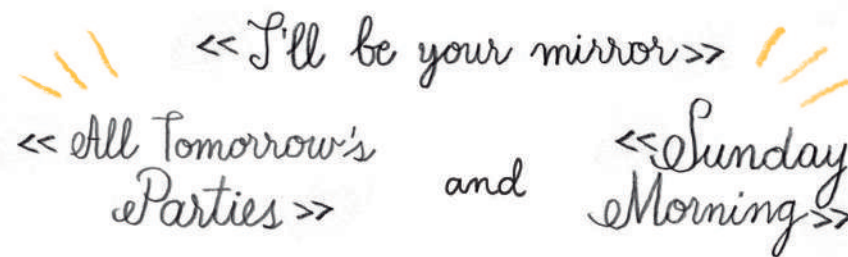 <<I'll be your mirror>>
<<All Tomorrow's
Parties>>
and
<<Sunday
Morning>>